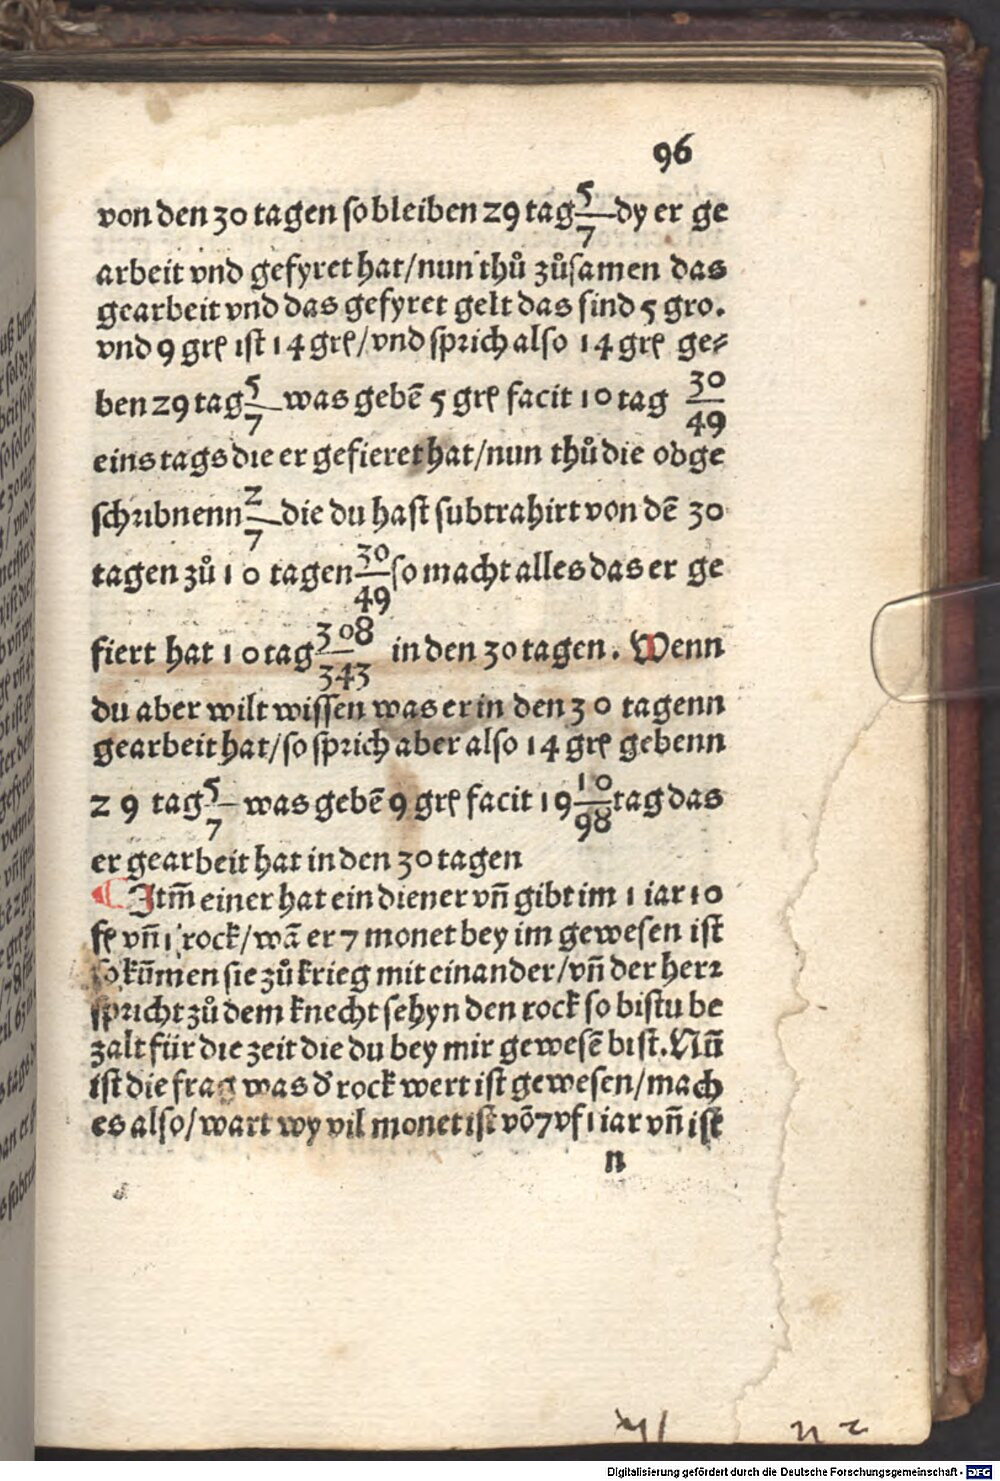 96
von den 30 tagen so bleiben 29 tag 5/7 dy er ge
arbeit vnd gefyret hat/nun thů zůsamen das
gearbeit vnd das gefyret gelt das sind 5 gro.
vnd 9 grꝭ ist 14 grꝭ/vnd sprich also 14 grꝭ ge⸗
ben 29 tag 5/7 was gebẽ 5 grꝭ facit 10 tag 30/49
eins tags die er gefieret hat/nun thů die obge
schribnenn 2/7 die du hast subtrahirt von dẽ 30
tagen zů 10 tagen 30/49 so macht alles das er ge
fiert hat 10 tag 308/343 in den 30 tagen. Wenn
du aber wilt wissen was er in den 30 tagenn
gearbeit hat/so sprich aber also 14 grꝭ gebenn
29 tag 5/7 was gebẽ 9 grꝭ facit 19 10/98 tag das
er gearbeit hat in den 30 tagen
¶ Itm̃ einer hat ein diener vñ gibt im 1 iar 10
fꝭ vñ 1 rock/wã er 7 monet bey im gewesen ist
so kũmen sie zů krieg mit einander/vñ der herr
spricht zů dem knecht se hyn den rock so bistu be
zalt für die zeit die du bey mir gewesẽ bist. Nũ
ist die frag was d' rock wert ist gewesen/mach
es also/wart wy vil monet ist võ 7 vf 1 iar vñ ist
n
Digitalisierung gefördert durch die Deutsche Forschungsgemeinschaft - DFG